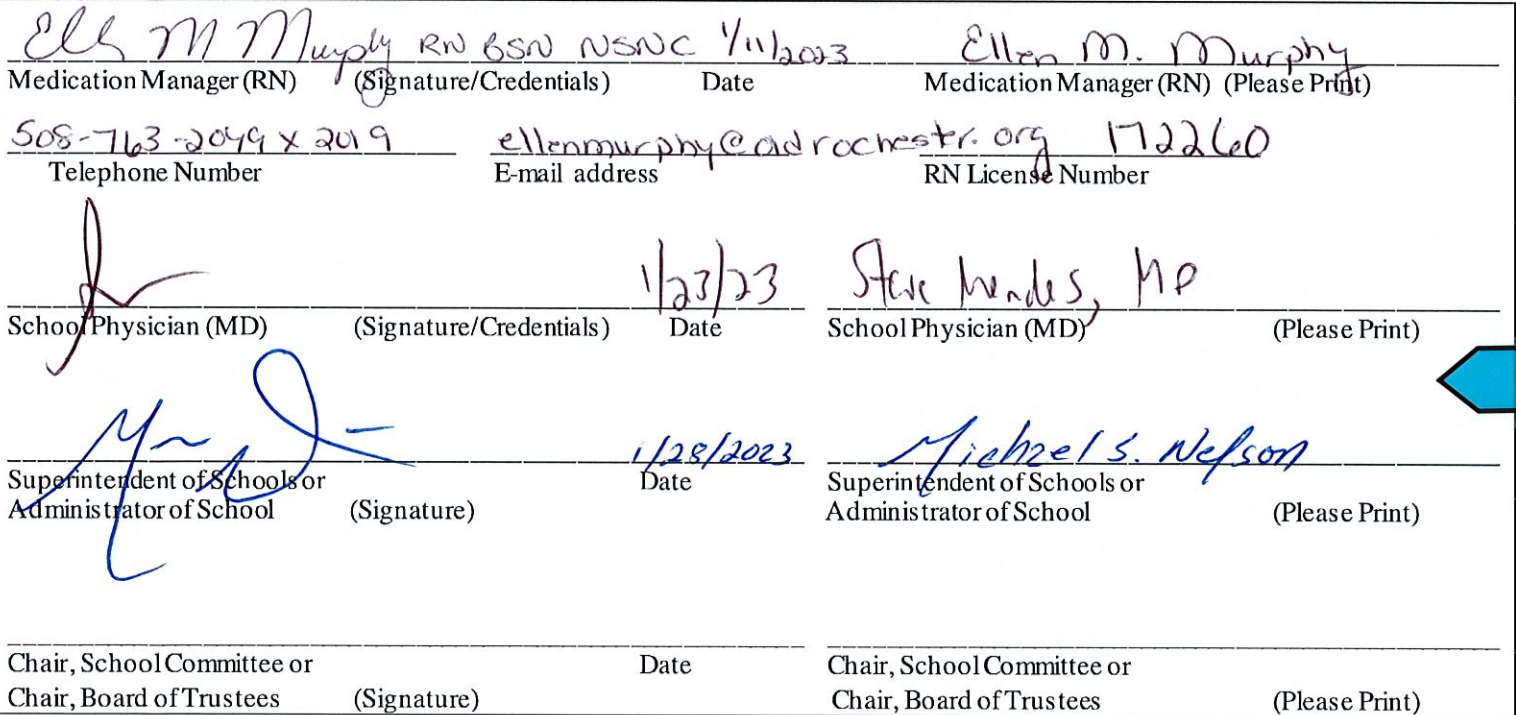 Ellen M Murphy RN BSN NSNC 1/11/2023 Ellen M. Murphy
Medication Manager (RN) (Signature/Credentials) Date Medication Manager (RN) (Please Print)
508-763-2049 x 2019 ellenmurphy@oldrochester.org 172260
Telephone Number E-mail address RN License Number
1/23/23 Steve Mendes, MD
School Physician (MD) (Signature/Credentials) Date School Physician (MD) (Please Print)
1/28/2023 Michael S. Nelson
Superintendent of Schools or Date Superintendent of Schools or
Administrator of School (Signature) Administrator of School (Please Print)
Chair, School Committee or Date Chair, School Committee or
Chair, Board of Trustees (Signature) Chair, Board of Trustees (Please Print)